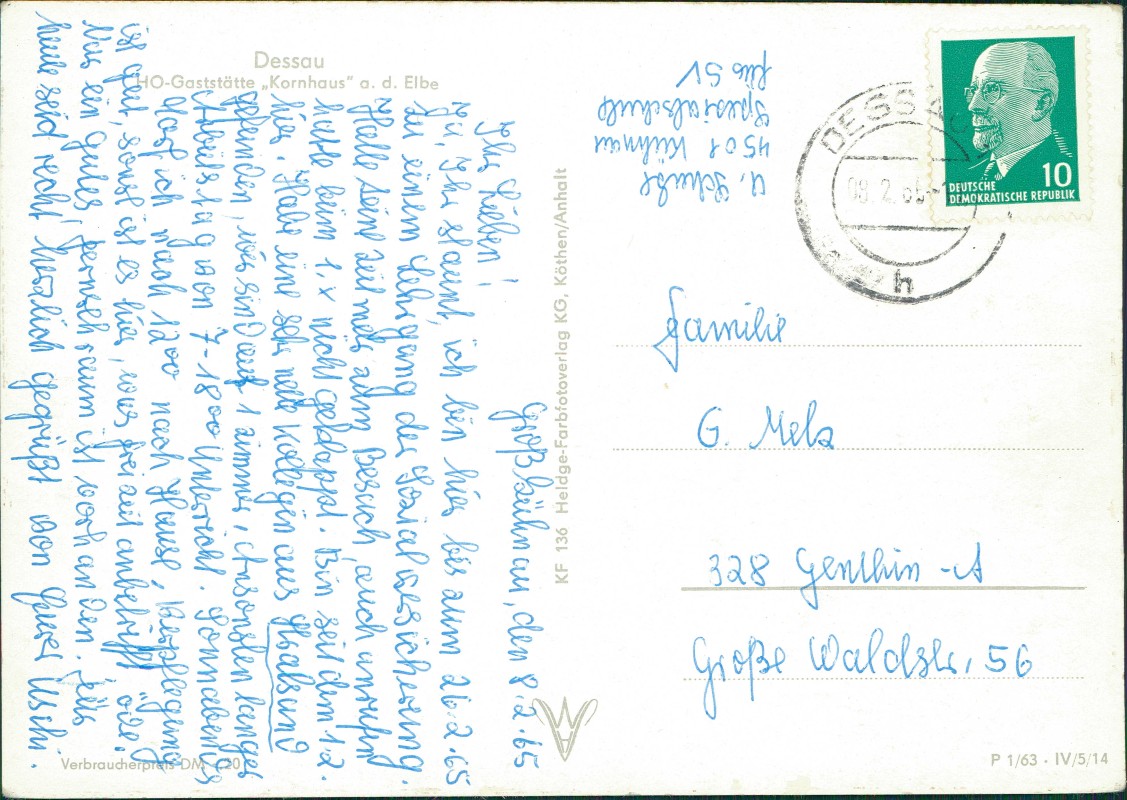 Dessau
HO-Gaststätte „Kornhaus" a. d. Elbe
Großkühnau, den 8.2.65
Ihr Lieben!
Ja, Ihr staunt, ich bin hier bis zum 26.2.65
zu einem Lehrgang der Sozialversicherung.
Halle seine Zeit mehr zum Besuch, auch anrufen
hatte beim 1. x nicht geklappt. Bin seit dem 1.2.
hier. Habe eine sehr nette Kollegin aus Stralsund
gefunden, wir sind auf 1 Zimmer. Ansonsten langer
Arbeitstag von 7-1800 Unterricht. Sonnabends
darf ich nach 1200 nach Hause, Verpflegung
ist gut, sonst ist es hier, was Freizeit anbetrifft, öde.
Nur ein guter Fernsehraum ist vorhanden. Für
heute seid recht herzlich gegrüßt von Eurer Uschi.
U. Schulze
4501 Kühnau
Spezialschule
für SV
DESSAU
08.2.65
h
DEUTSCHE
DEMOKRATISCHE REPUBLIK
10
Familie
G. Melz
328 Genthin-A
Große Waldstr. 56
KF 136 Heldge-Farbfotoverlag KG, Köthen/Anhalt
Verbraucherpreis DM -,20
P 1/63 · IV/5/14